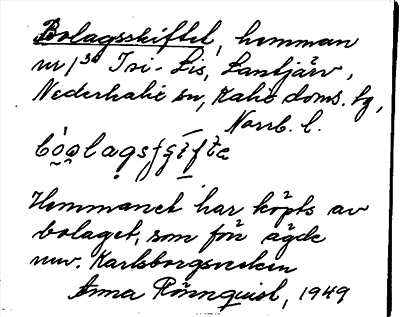 Bolagsskiftet, hemman
nr 1³⁰ Isi-Lis, Lantjärv,
Nederkalix sn, Kalix doms. lg,
Norrb. l.
Hemmanet har köpts av
bolaget, som förr ägde
nuv. Karlsborgsverken
Anna Rönnquist, 1949